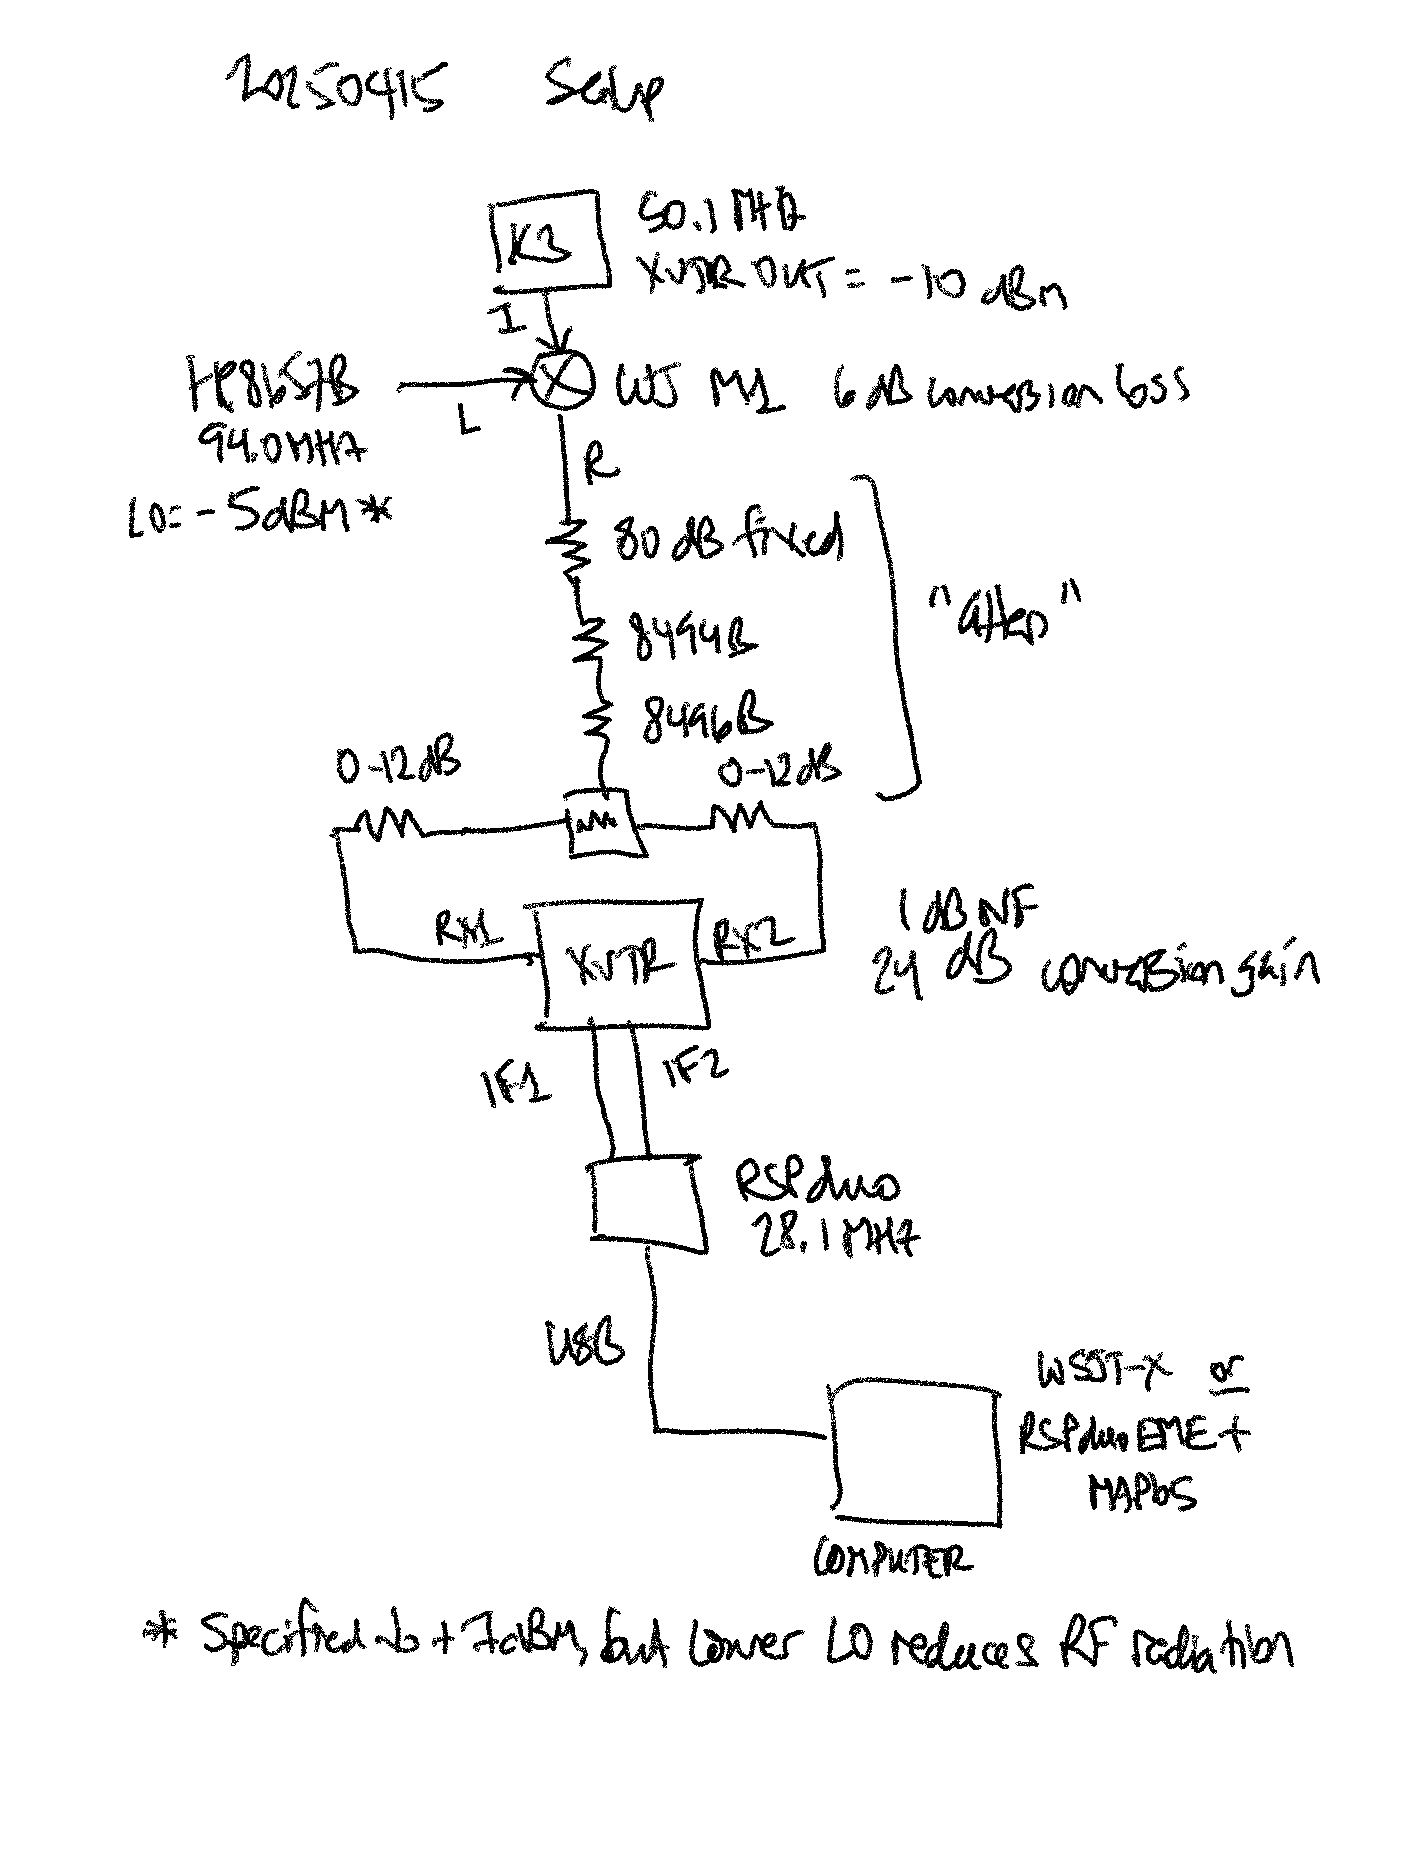 20250415 Setup
K3
50.1 MHz
XVTR OUT = -10 dBm
I
HP8657B
94.0 MHz
LO = -5 dBM *
L
X
WJ M1 6 dB conversion loss
R
80 dB fixed
8494B
8496B
"atten"
0-12dB
0-12dB
RX1
XVTR
RX2
1 dB NF
24 dB conversion gain
IF1
IF2
RSPduo
28.1 MHz
USB
WSJT-X or
RSPduoEME +
MAP65
COMPUTER
* Specified to +7dBM, but lower LO reduces RF radiation